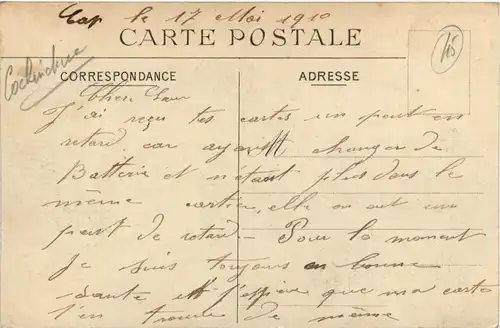 Cap le 17 Mai 1910
CARTE POSTALE
45
Cochinchine
CORRESPONDANCE
ADRESSE
Cher
J'ai reçu tes cartes un peut en
retard car ayant changer de
Batterie et n'étant plus dans le
même cartier, elle on eut un
peut de retard - Pour le moment
Je suis toujours en bonne
santé et J'espère que ma carte
t'en trouve de même